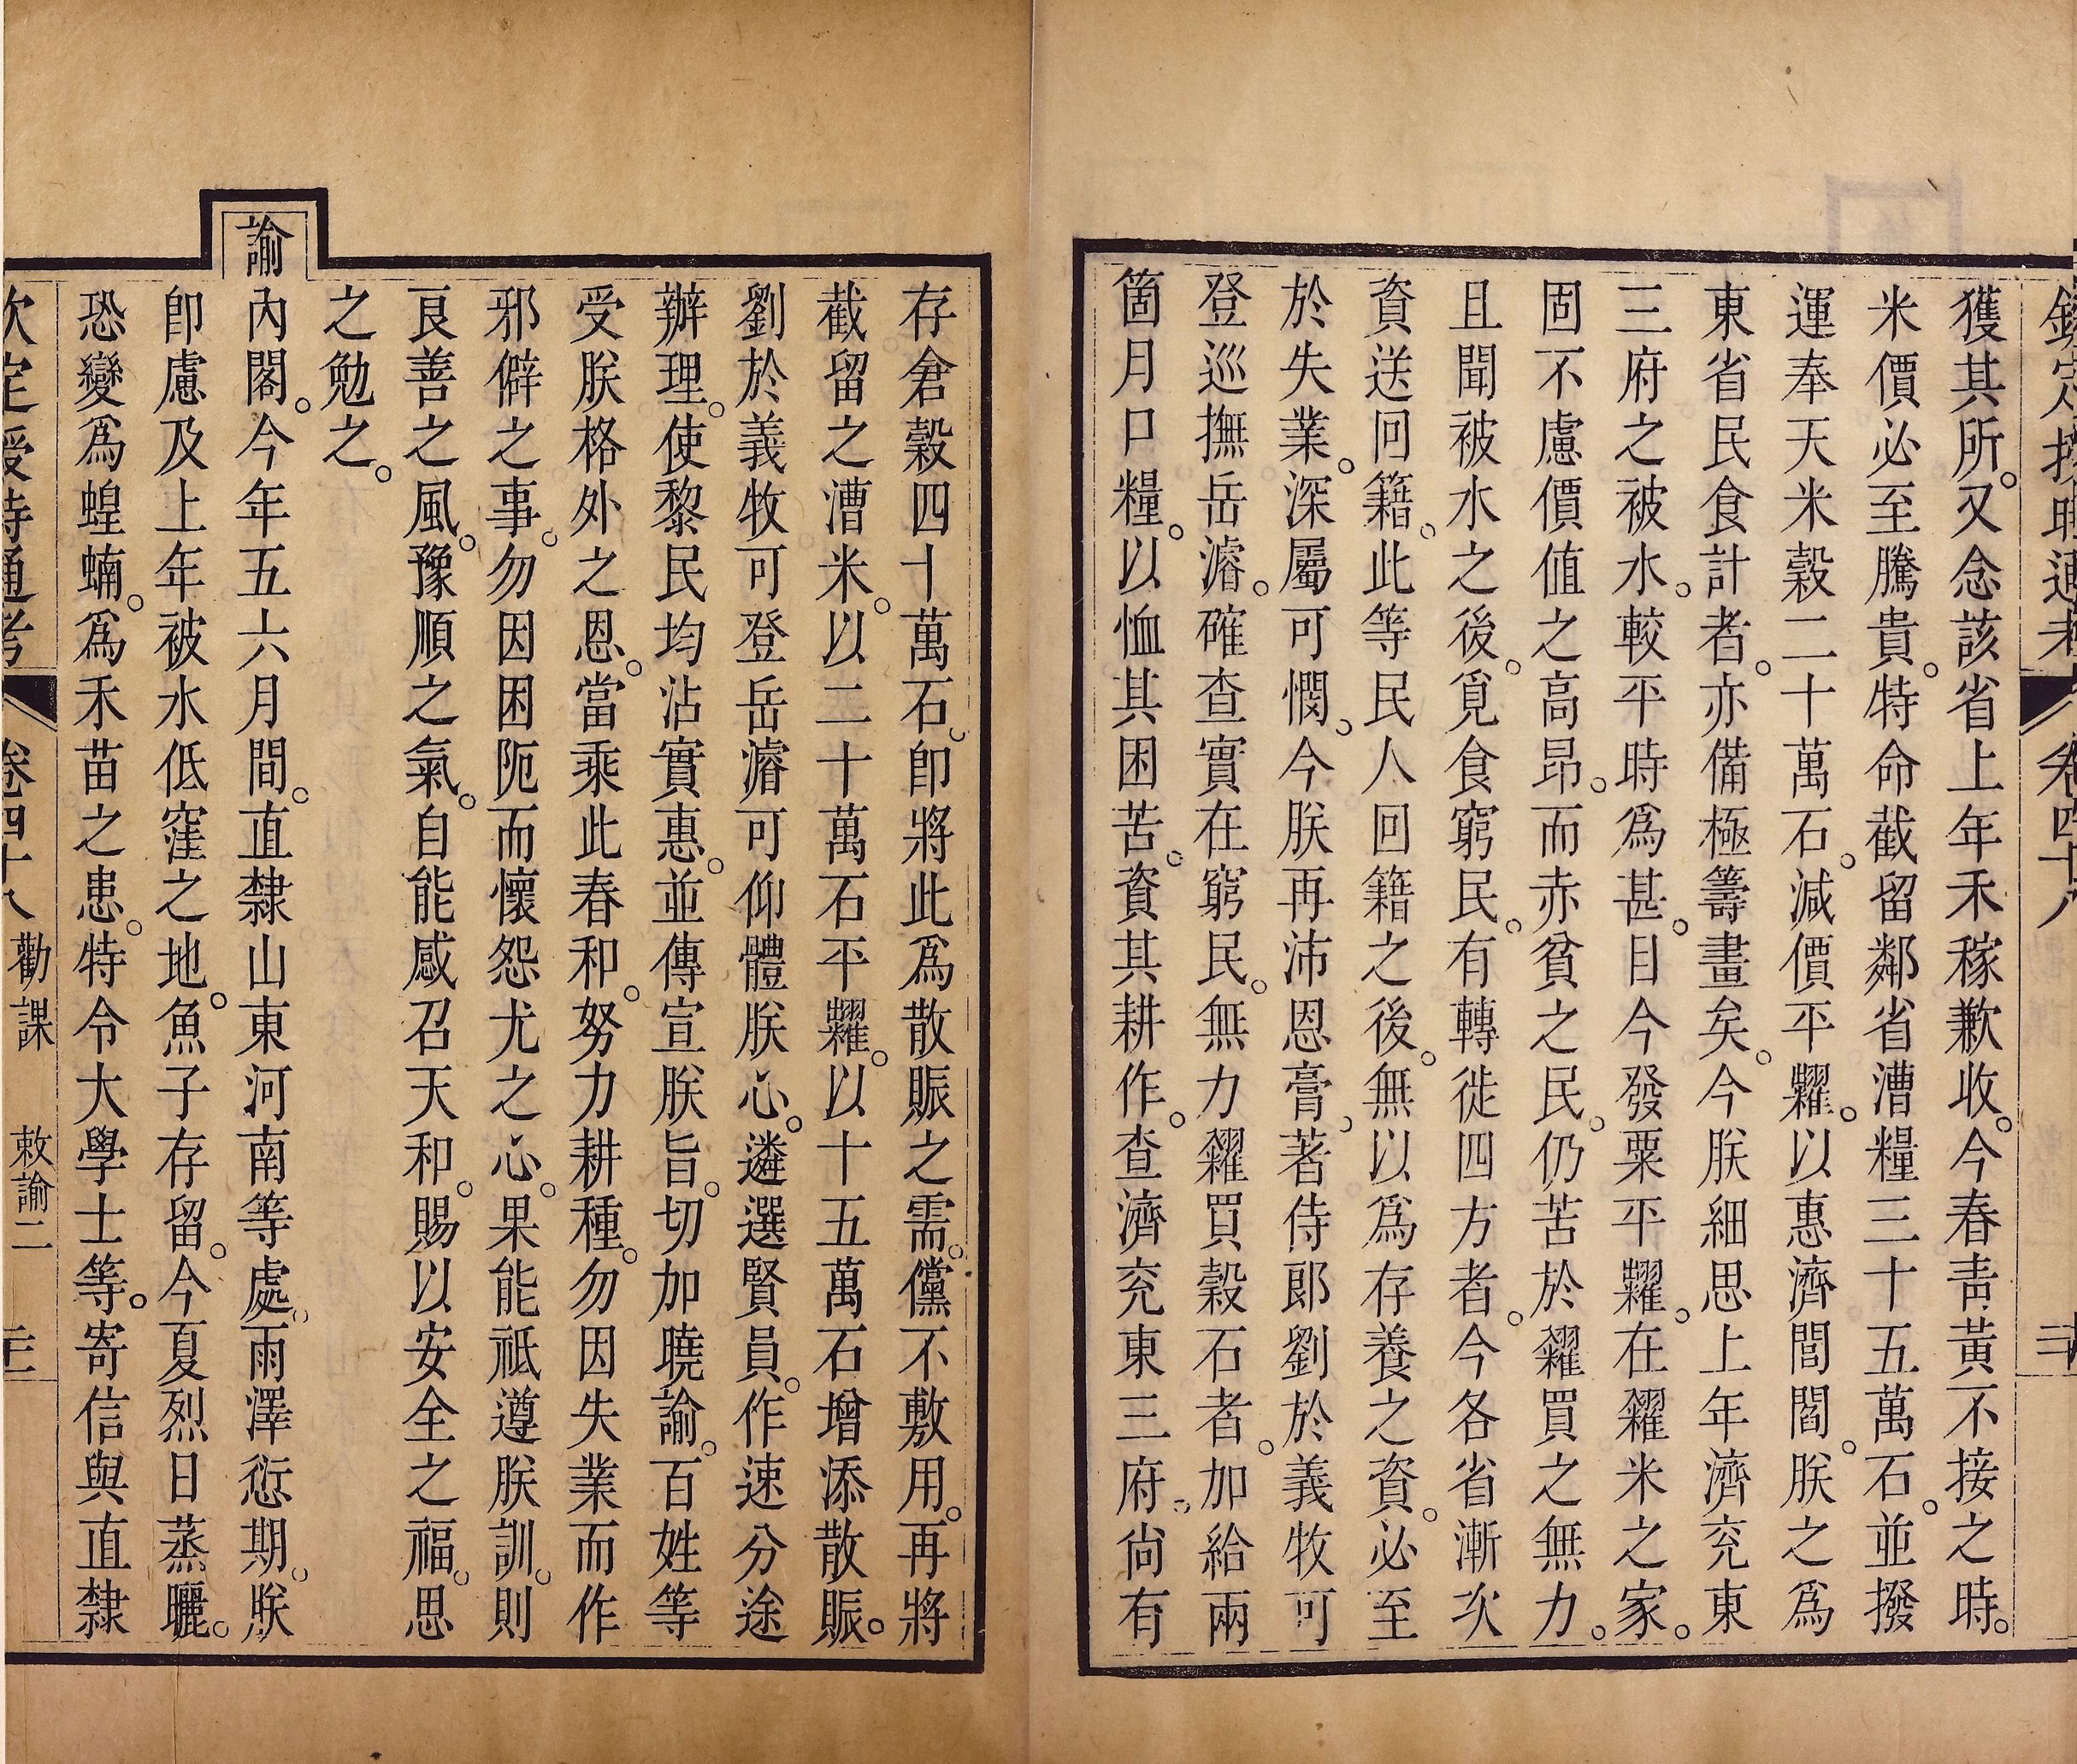 欽定授時通考 卷四十八
獲其所。又念該省上年禾稼歉收。今春靑黃不接之時。
米價必至騰貴。特命截留鄰省漕糧三十五萬石。並撥
運奉天米穀二十萬石。減價平糶。以惠濟閭閻。朕之爲
東省民食計者。亦備極籌畫矣。今朕細思上年濟兖東
三府之被水。較平時爲甚。目今發粟平糶。在糴米之家。
固不慮價值之高昂。而赤貧之民。仍苦於糴買之無力。
且聞被水之後。覓食窮民。有轉徙四方者。今各省漸次
資送回籍。此等民人回籍之後。無以爲存養之資。必至
於失業。深屬可憫。今朕再沛恩膏。著侍郎劉於義牧可
登巡撫岳濬。確查實在窮民。無力糴買穀石者。加給兩
箇月口糧。以恤其困苦。資其耕作。查濟兖東三府。尙有
存倉穀四十萬石。卽將此爲散賑之需。儻不敷用。再將
截留之漕米。以二十萬石平糶。以十五萬石增添散賑。
劉於義牧可登岳濬可仰體朕心。遴選賢員。作速分途
辦理。使黎民均沾實惠。並傳宣朕旨。切加曉諭。百姓等
受朕格外之恩。當乘此春和。努力耕種。勿因失業而作
邪僻之事。勿因困阨而懷怨尤之心。果能祗遵朕訓。則
良善之風。豫順之氣。自能感召天和。賜以安全之福。思
之勉之。
諭內閣。今年五六月間。直隸山東河南等處。雨澤愆期。朕
卽慮及上年被水低窪之地。魚子存留。今夏烈日蒸曬。
恐變爲蝗蝻。爲禾苗之患。特令大學士等。寄信與直隸
欽定授時通考 卷四十八 勸課 敕諭二